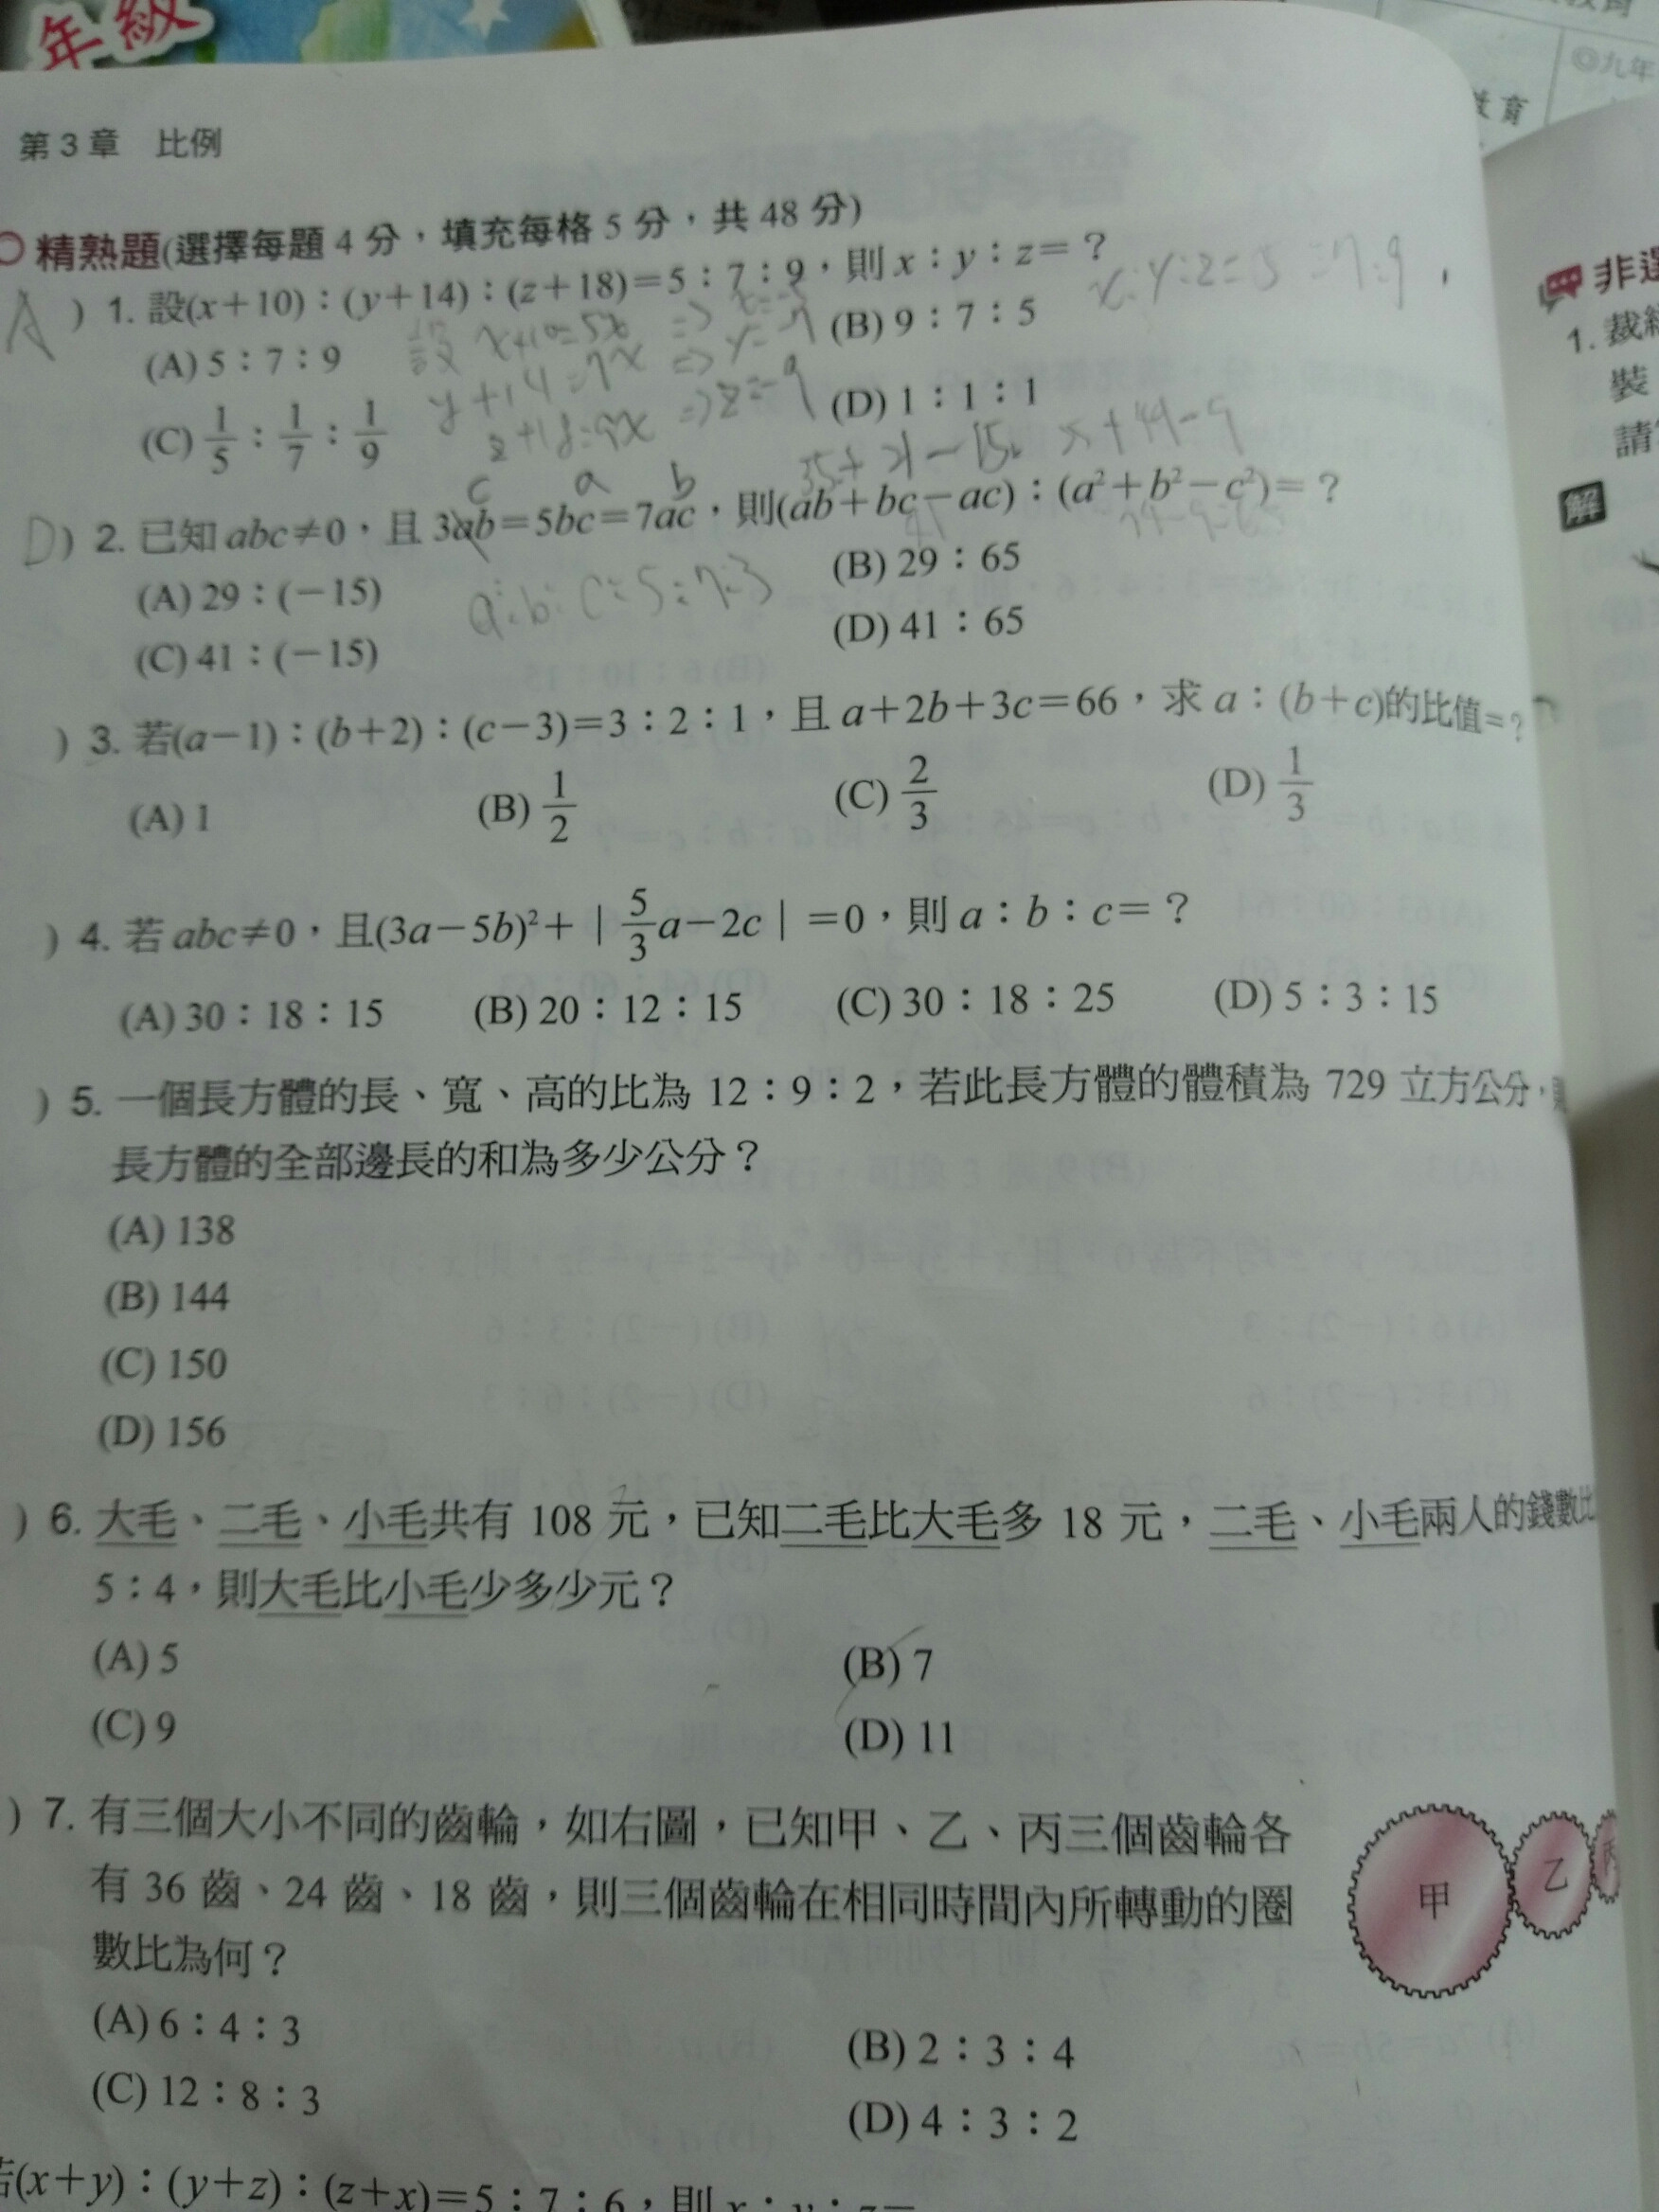 年級
教育
◎九年
教育
第3章 比例
精熟題(選擇每題4分，填充每格5分，共48分)
A ) 1. 設(x+10)：(y+14)：(z+18)=5：7：9，則x：y：z=？
x:y:z=5:7:9
(A) 5：7：9
(B) 9：7：5
設 x+10=5x ⇒ x=-5
y+14=7x ⇒ y=-7
z+18=9x ⇒ z=-9
(C) 1/5：1/7：1/9
(D) 1：1：1
35+21-15
c a b
D ) 2. 已知abc≠0，且3ab=5bc=7ac，則(ab+bc-ac)：(a²+b²-c²)=？
41
74-9=65
(A) 29：(-15)
(B) 29：65
a:b:c=5:7:3
(C) 41：(-15)
(D) 41：65
) 3. 若(a-1)：(b+2)：(c-3)=3：2：1，且a+2b+3c=66，求a：(b+c)的比值=？
(A) 1 (B) 1/2 (C) 2/3 (D) 1/3
) 4. 若abc≠0，且(3a-5b)²+｜5/3a-2c｜=0，則a：b：c=？
(A) 30：18：15 (B) 20：12：15 (C) 30：18：25 (D) 5：3：15
) 5. 一個長方體的長、寬、高的比為12：9：2，若此長方體的體積為729立方公分，
長方體的全部邊長的和為多少公分？
(A) 138
(B) 144
(C) 150
(D) 156
) 6. 大毛、二毛、小毛共有108元，已知二毛比大毛多18元，二毛、小毛兩人的錢數比
5：4，則大毛比小毛少多少元？
(A) 5
(B) 7
(C) 9
(D) 11
) 7. 有三個大小不同的齒輪，如右圖，已知甲、乙、丙三個齒輪各
有36齒、24齒、18齒，則三個齒輪在相同時間內所轉動的圈
數比為何？
甲 乙
(A) 6：4：3
(B) 2：3：4
(C) 12：8：3
(D) 4：3：2
若(x+y)：(y+z)：(z+x)=5：7：6，則x：y：z=
非選
1. 裁
裝
請
解